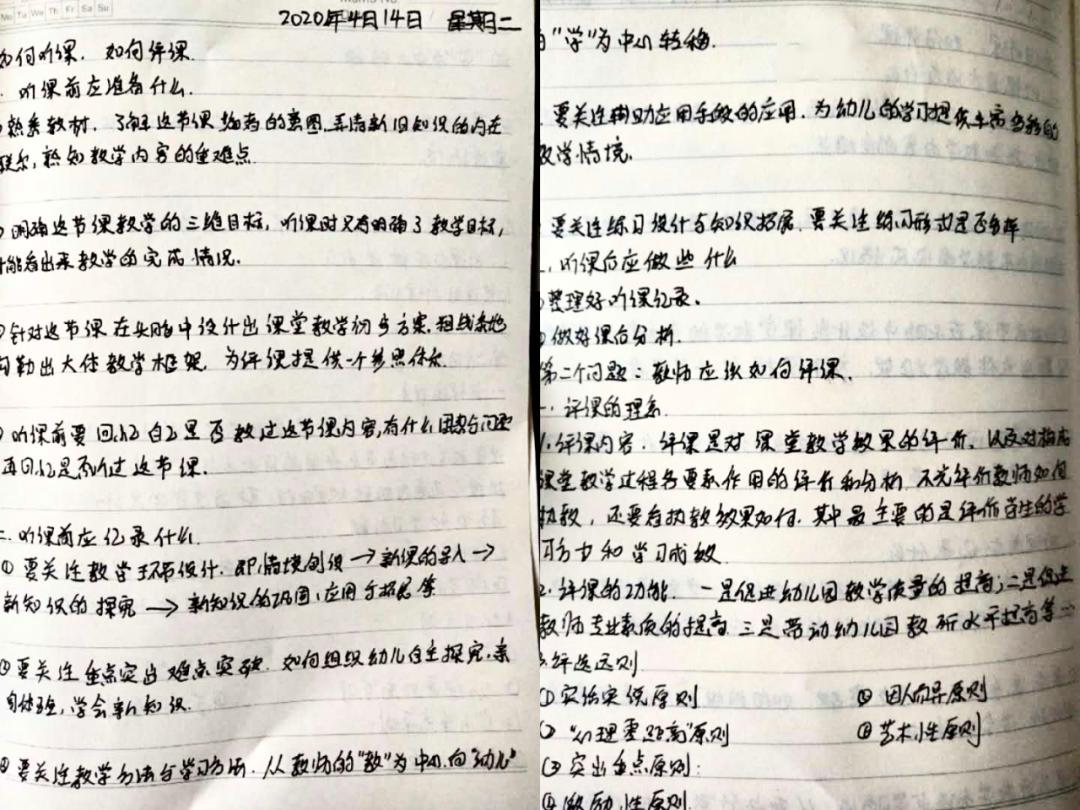 Mo Tu We Th Fr Sa Su
2020年4月14日 星期二
如何听课. 如何评课.
. 听课前应准备什么.
熟系教材. 了解这节课编者的意图,弄清新旧知识的内在
联系,熟知教学内容的重难点
明确这节课教学的三维目标, 听课时只有明确了教学目标,
才能看出来教学的完成情况.
针对这节课在头脑中设计出课堂教学初步方案.粗线条地
勾勒出大体教学框架, 为评课提供一个参照体系.
听课前要回忆自己是否教过这节课内容,有什么困惑与问题
再回忆是否听过这节课.
二. 听课前应记录什么.
① 要关注教学环节设计. 即情境创设→新课的导入→
新知识的探究→新知识的巩固,应用与拓展等
②要关注重点突出难点突破. 如何组织幼儿自主探究,亲
自体验,学会新知识.
要关注教学方法与学习方法. 从教师的"教"为中心.向"幼儿"
的"学"为中心转移.
要关注辅助应用手段的应用. 为幼儿的学习提供
教学情境.
要关注练习设计与知识拓展,要关注练习形式是否多样
. 听课后应做些什么
整理好听课记录.
做好课后分析.
第二个问题:教师应该如何评课.
一. 评课的理念.
1.评课内容. 评课是对课堂教学效果的评价, 以及对构成
课堂教学过程各要素作用的评价和分析 不光评价教师如何
执教, 还要看执教效果如何. 其中最主要的是评价学生的学
习方 和学习成效.
2.评课的功能. 一是促进幼儿园教学质量的提高;二是促进
教师专业素质的提高 三是带动幼儿园教研水平提高等
3.评选原则
①实话实说原则 因人而异原则
"心理零距离"原则 艺术性原则
③突出重点原则:
④激励性原则.